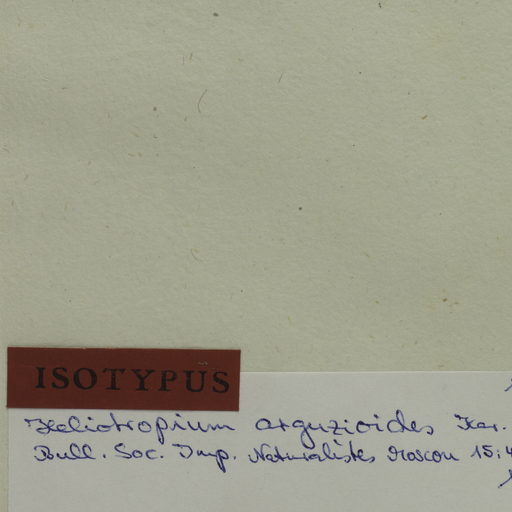 ISOTYPUS
Heliotropium arguzioides Kar.
Bull. Soc. Imp. Naturalistes Moscou 15:4